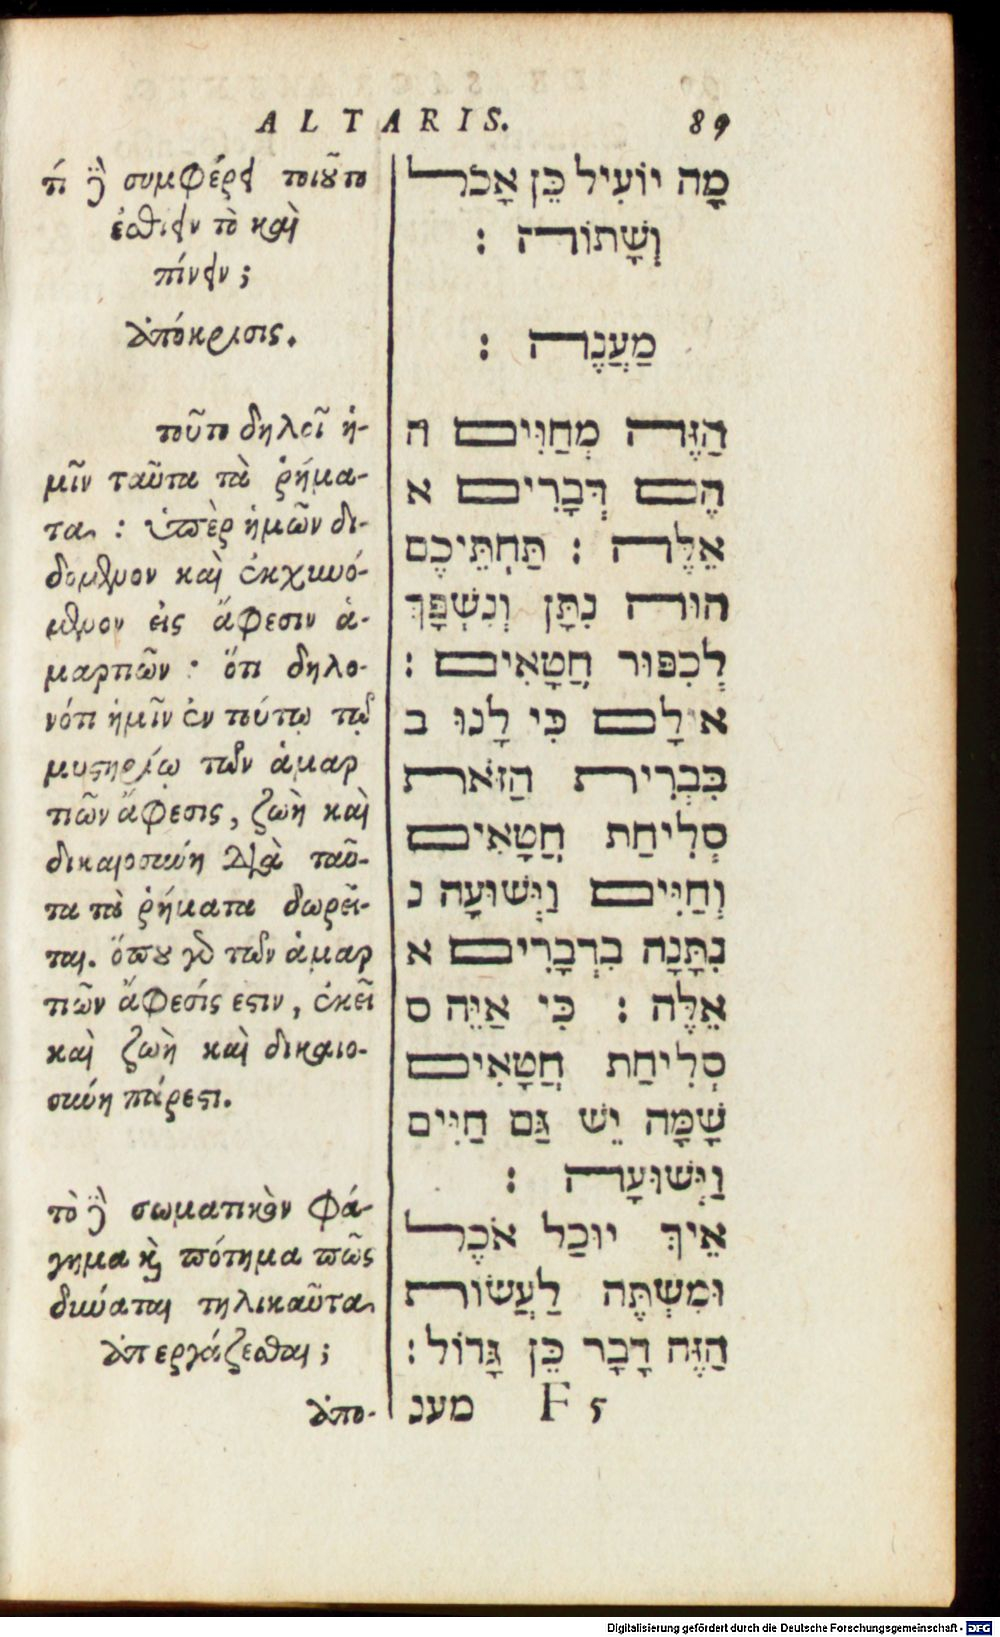 ALTARIS. 89
τί δὲ συμφέρει τοιοῦτο
ἐσθίειν τὸ καὶ
πίνειν;
ἀπόκρισις.
τοῦτο δηλοῖ ἡ-
μῖν ταῦτα τὰ ῥήμα-
τα: ὑπὲρ ἡμῶν δι-
δομενον καὶ ἐκχυνό-
μενον εἰς ἄφεσιν ἁ-
μαρτιῶν· ὅτι δηλο-
νότι ἡμῖν ἐν τούτῳ τῷ
μυστηρίῳ τῶν ἁμαρ
τιῶν ἄφεσις, ζωὴ καὶ
δικαιοσύνη διὰ ταῦ-
τα τὰ ῥήματα δωρεῖ-
ται. ὅπου γὰρ τῶν ἁμαρ
τιῶν ἄφεσίς εστιν, ἐκεῖ
καὶ ζωὴ καὶ δικαιο-
σύνη πάρεστι.
τὸ δὲ σωματικὸν φά-
γημα καὶ πότημα πῶς
δύναται τηλικαῦτα
ἀπεργάζεσθαι;
ἀπο-
מָה יוֹעִיל כֵּן אָכֹל
וְשָׁתוֹה :
מַעֲנֶה :
הַזֶּה מְחַוִּים ה
הֶם דְּבָרִים א
אֵלֶּה : תַּחְתֵּיכֶם
הוּה נִתָּן וְנִשְׁפָּךְ
לְכִפּוּר חֲטָאִים :
אוּלָם כִּי לָנוּ ב
בִּבְרִית הַזֹּאת
סְלִיחַת חֲטָאִים
וְחַיִּים וַיְשׁוּעָה נ
נִתָּנָה בִדְבָרִים א
אֵלֶּה : כִּי אַיֵּה ס
סְלִיחַת חֲטָאִים
שָׁמָּה יֵשׁ גַּם חַיִּים
וַיְשׁוּעָה :
אֵיךְ יוּכַל אֹכֶל
וּמִשְׁתֶּה לַעֲשׂוֹת
הַזֶּה דָבָר כֵּן גָּדוֹל :
מענ F 5
Digitalisierung gefördert durch die Deutsche Forschungsgemeinschaft - DFG